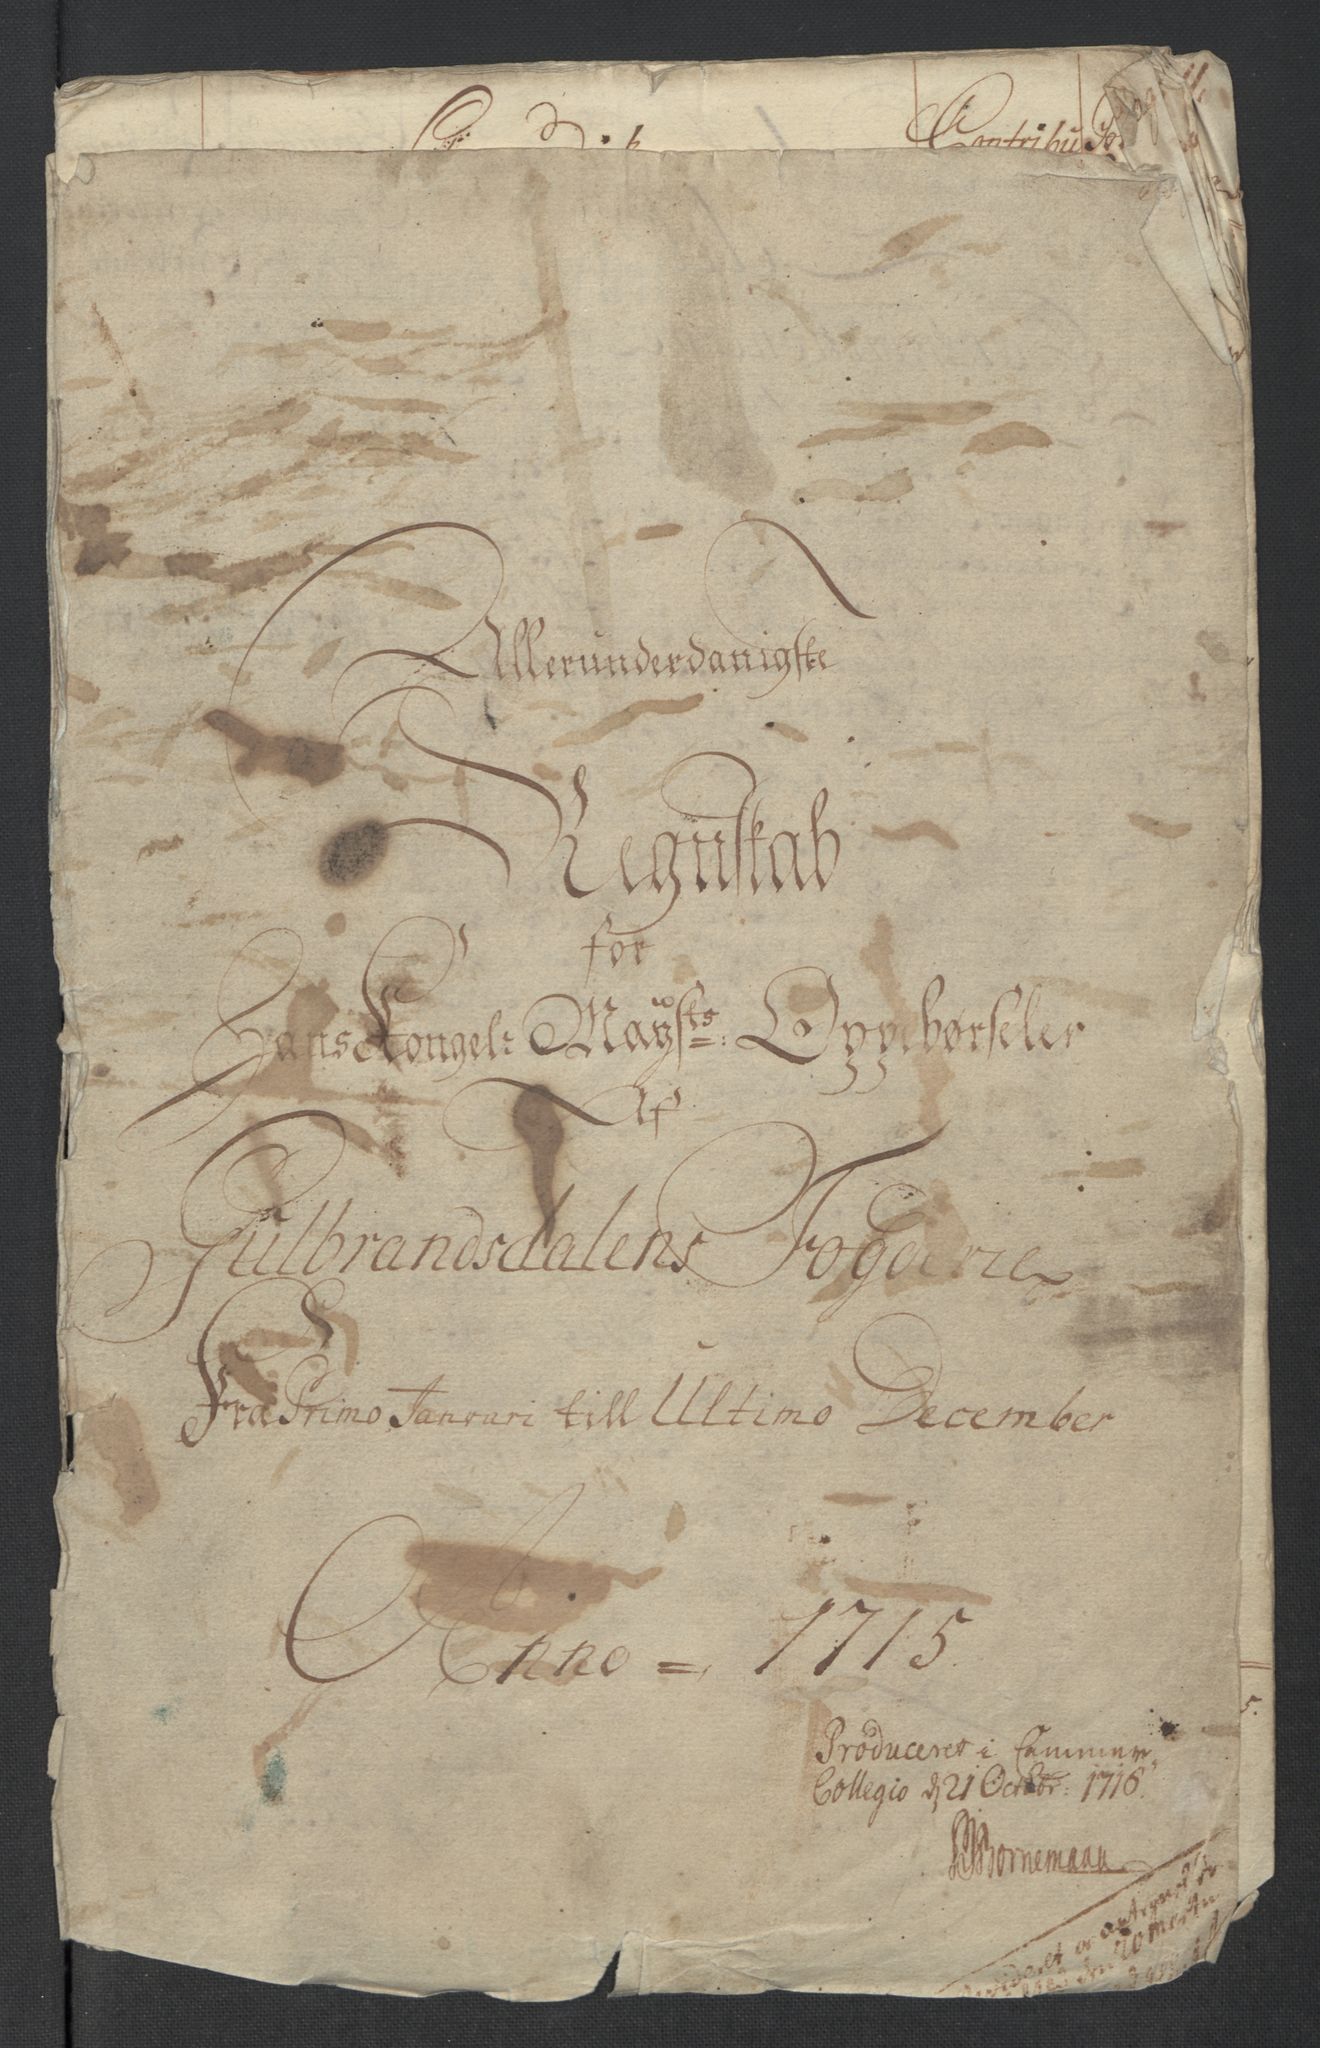 Contribu
Allerunderdanigste
Regnskab
for
Hans Kongel: Mayts: Oppebørseler
Af
Gulbrandsdalens Fogderie
Fra Primo Januari till Ultimo December
Anno = 1715
Produceret i Cammer
Collegio d 21 Octobr: 1716.
Bornemann
5.
Revideret og antegnet
den 20 Martii